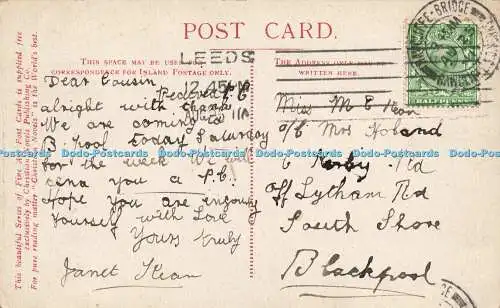 POST CARD.
THIS SPACE MAY BE USED FOR
CORRESPONDENCE FOR INLAND POSTAGE ONLY.
THE ADDRESS ONLY TO BE
WRITTEN HERE.
LEEDS
12.15 PM
HALFPENNY
Dear Cousin
Received P.C
alright with
We are coming to
B pool today Saturday
for the week will
cena you a P.C.
Hope you are enjoying
yourself with Love
Yours truly
Janet Kean
Miss M E Kean
c/o Mrs Holand
6 Kirby Rd
off Lytham Rd
South Shore
Blackpool
This beautiful Series of Fine Art Post Cards is supplied free
exclusively by Christian Novels Publishing Co.
For pure reading matter "Christian Novels" is the World's best.
Dodo-Postcards Dodo-Postcards Dodo-Postcards Dodo-Postcards Dodo-Postcards Dodo-Postcards